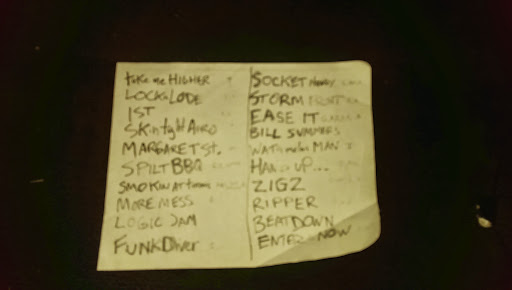 take me HIGHER
LOCK&LODE
1ST
Skintight Afro
MARGARET St.
SPILT BBQ
SMOKIN AT
MORE MESS
LOGIC JAM
FUNK Diver
SOCKET
STORM FRONT
EASE IT
BILL SUMMERS
MAN
HANDS UP...
ZIGZ
RIPPER
BEATDOWN
ENTER NOW